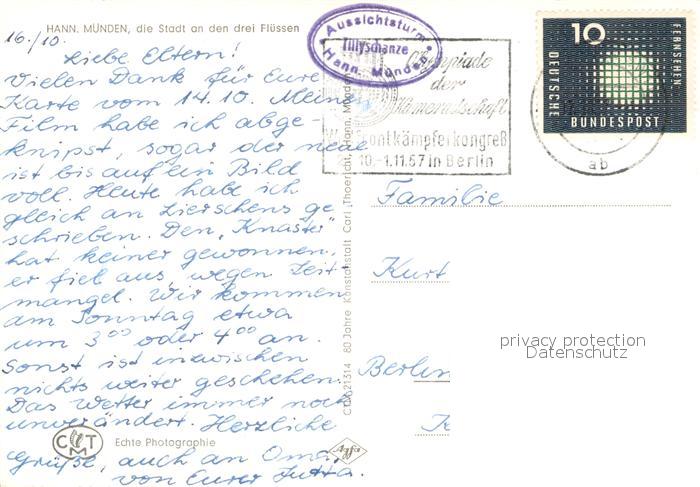 HANN. MÜNDEN, die Stadt an den drei Flüssen
16./10.
Liebe Eltern!
Vielen Dank für Eure
Karte vom 14.10. Meinen
Film habe ich abge-
knipst, sogar der neue
ist bis auf ein Bild
voll. Heute habe ich
gleich an Lierschens ge
schrieben. Den „Knaster"
hat keiner gewonnen,
er fiel aus wegen Zeit
mangel. Wir kommen
am Sonntag etwa
um 3⁰⁰ oder 4⁰⁰ an.
Sonst ist inzwischen
nichts weiter geschehen.
Das Wetter immer noch
unverändert. Herzliche
Grüße, auch an Oma,
von Eurer Jutta.
CTM
Echte Photographie
Agfa
CTM 21314 80 Jahre Kunstanstalt Carl Thoericht, Hann. Münden
Aussichtsturm
Tillyschanze
Hann. Münden
Olympiade
der
Kameradschaft
Frontkämpferkongreß
10.-1.11.57 in Berlin
ab
10
FERNSEHEN
DEUTSCHE
BUNDESPOST
Familie
Kurt
Berlin
K
privacy protection
Datenschutz